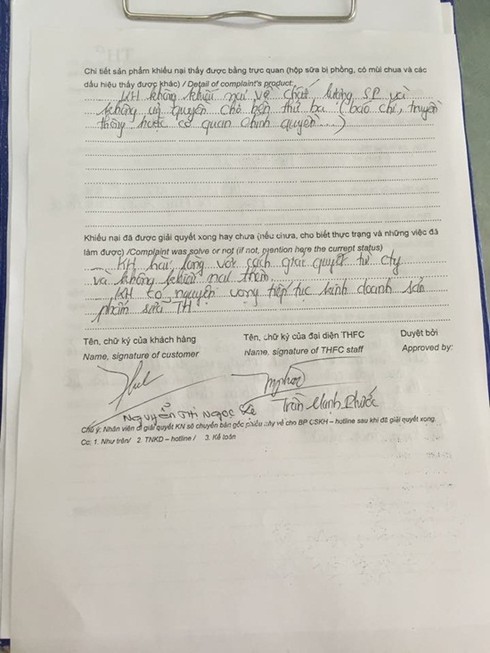 Chi tiết sản phẩm khiếu nại thấy được bằng trực quan (hộp sữa bị phồng, có mùi chua và các
dấu hiệu thấy được khác) / Detail of complaint's product:
KH không khiếu nại về chất lượng SP và
không uỷ quyền cho bên thứ ba (báo chí, truyền
thông hoặc cơ quan chính quyền....)
Khiếu nại đã được giải quyết xong hay chưa (nếu chưa, cho biết thực trạng và những việc đã
làm được) /Complaint was solve or not (if not, mention here the current status)
KH hài lòng với cách giải quyết từ cty
và không khiếu nại thêm.
KH có nguyện vọng tiếp tục kinh doanh sản
phẩm sữa TH
Tên, chữ ký của khách hàng Tên, chữ ký của đại diện THFC Duyệt bởi
Name, signature of customer Name, signature of THFC staff Approved by:
Nguyễn Thị Ngọc Trần Minh Phước
Chú ý: Nhân viên đi giải quyết KN sẽ chuyển bản gốc phiếu này về cho BP CSKH – hotline sau khi đã giải quyết xong.
Cc: 1. Như trên/ 2. TNKD – hotline / 3. Kế toán